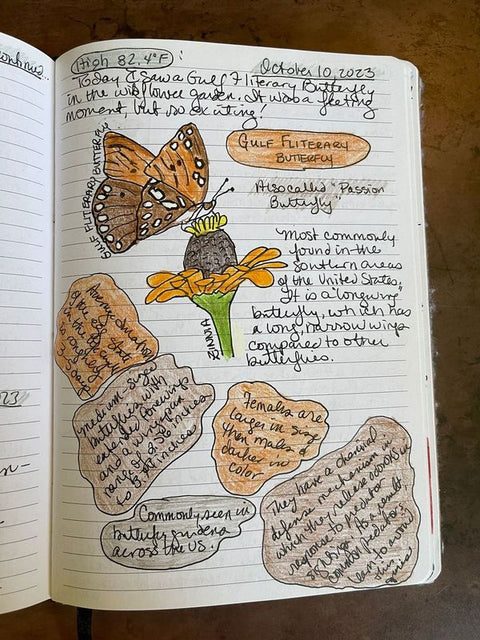 continue..
High 82.4°F
October 10, 2023
Today I saw a Gulf Fliterary Butterfly
in the wildflower garden. It was a fleeting
moment, but so exciting!
GULF FLITERARY
BUTTERFLY
GULF FLITERARY BUTTERFLY
Also called "Passion
Butterfly"
Most commonly
found in the
southern areas
of the United States.
It is a "longwing"
butterfly, which has
a long, narrow wings
compared to other
butterflies.
ZINNIA
Average duration
of the egg
is
3-5 days
medium size
butterflies with
elongated forewings
and a wingspan
range of 2.5 inches
to 3 inches
Females are
larger in size
then males &
darker in
color
They have a chemical
defense mechanism in
which they release odors in
response to predator
sightings. As a result
common predators
learn to avoid
this
species
Commonly seen in
butterfly gardens
across the US.
23
n-